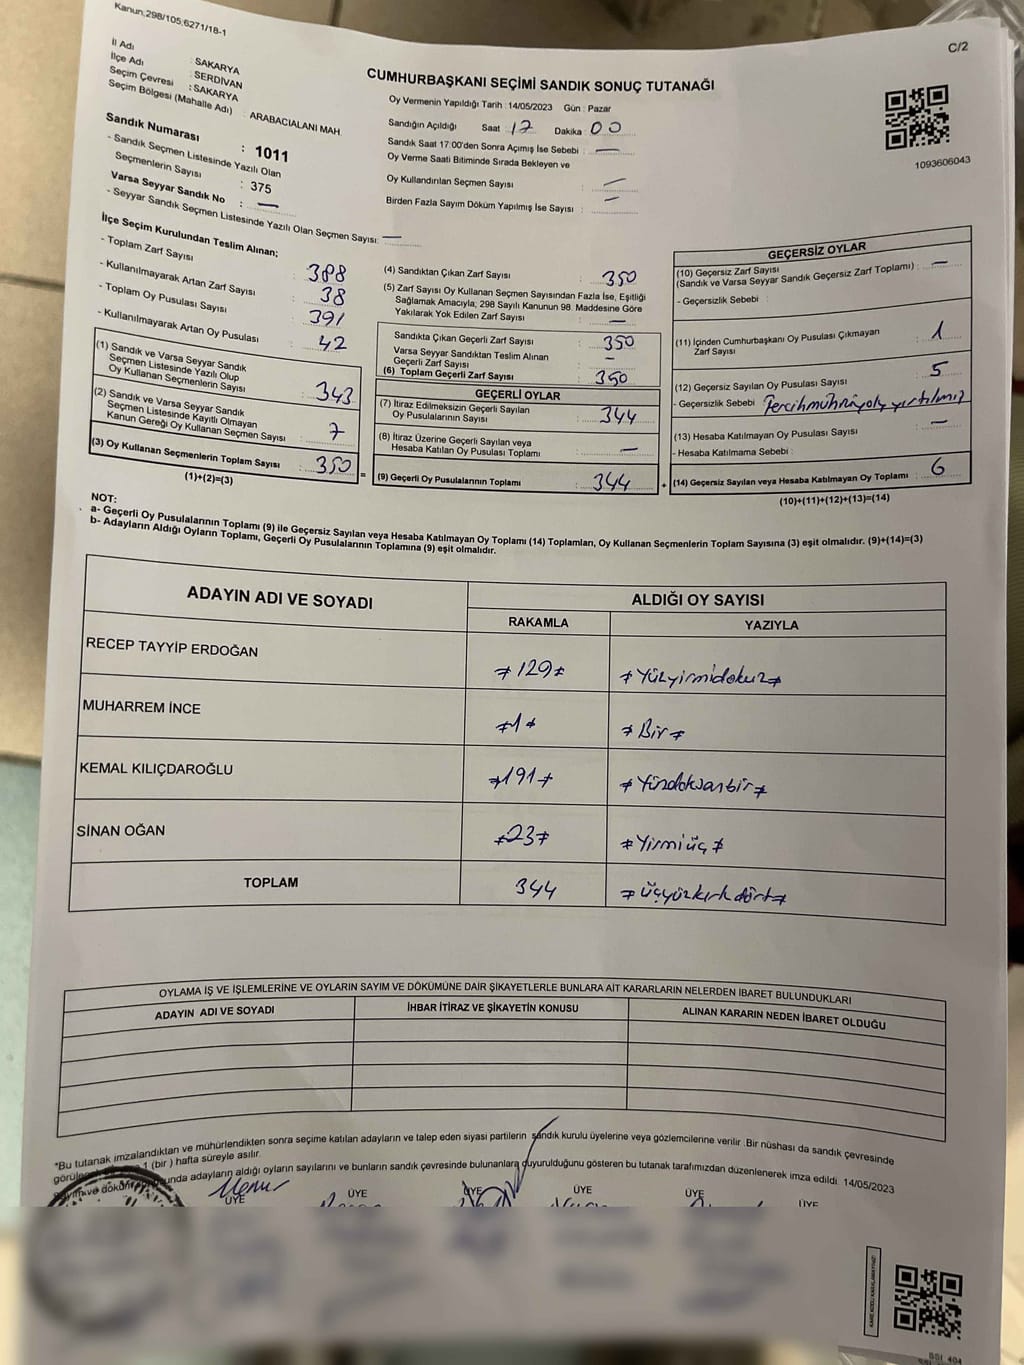 Kanun;298/105;6271/18-1
C/2
İl Adı : SAKARYA
İlçe Adı : SERDİVAN
Seçim Çevresi : SAKARYA
Seçim Bölgesi (Mahalle Adı) : ARABACIALANI MAH.
Sandık Numarası : 1011
- Sandık Seçmen Listesinde Yazılı Olan
Seçmenlerin Sayısı : 375
Varsa Seyyar Sandık No : —
- Seyyar Sandık Seçmen Listesinde Yazılı Olan Seçmen Sayısı: —
CUMHURBAŞKANI SEÇİMİ SANDIK SONUÇ TUTANAĞI
Oy Vermenin Yapıldığı Tarih : 14/05/2023 Gün : Pazar
Sandığın Açıldığı Saat : 17 Dakika : 00
Sandık Saat 17:00'den Sonra Açılmış İse Sebebi : —
Oy Verme Saati Bitiminde Sırada Bekleyen ve
Oy Kullandırılan Seçmen Sayısı : —
Birden Fazla Sayım Döküm Yapılmış İse Sayısı : —
1093606043
İlçe Seçim Kurulundan Teslim Alınan;
- Toplam Zarf Sayısı : 388
- Kullanılmayarak Artan Zarf Sayısı : 38
- Toplam Oy Pusulası Sayısı : 391
- Kullanılmayarak Artan Oy Pusulası : 42
(1) Sandık ve Varsa Seyyar Sandık
Seçmen Listesinde Yazılı Olup
Oy Kullanan Seçmenlerin Sayısı : 343
(2) Sandık ve Varsa Seyyar Sandık
Seçmen Listesinde Kayıtlı Olmayan
Kanun Gereği Oy Kullanan Seçmen Sayısı : 7
(3) Oy Kullanan Seçmenlerin Toplam Sayısı : 350
(1)+(2)=(3)
(4) Sandıktan Çıkan Zarf Sayısı : 350
(5) Zarf Sayısı Oy Kullanan Seçmen Sayısından Fazla İse, Eşitliği
Sağlamak Amacıyla; 298 Sayılı Kanunun 98. Maddesine Göre
Yakılarak Yok Edilen Zarf Sayısı : —
Sandıkta Çıkan Geçerli Zarf Sayısı : 350
Varsa Seyyar Sandıktan Teslim Alınan
Geçerli Zarf Sayısı : —
(6) Toplam Geçerli Zarf Sayısı : 350
GEÇERLİ OYLAR
(7) İtiraz Edilmeksizin Geçerli Sayılan
Oy Pusulalarının Sayısı : 344
(8) İtiraz Üzerine Geçerli Sayılan veya
Hesaba Katılan Oy Pusulası Toplamı : —
= (9) Geçerli Oy Pusulalarının Toplamı : 344
GEÇERSİZ OYLAR
(10) Geçersiz Zarf Sayısı
(Sandık ve Varsa Seyyar Sandık Geçersiz Zarf Toplamı) : —
- Geçersizlik Sebebi :
(11) İçinden Cumhurbaşkanı Oy Pusulası Çıkmayan
Zarf Sayısı : 1
(12) Geçersiz Sayılan Oy Pusulası Sayısı : 5
- Geçersizlik Sebebi : Tercih mührü yok, yırtılmış
(13) Hesaba Katılmayan Oy Pusulası Sayısı : —
- Hesaba Katılmama Sebebi :
+ (14) Geçersiz Sayılan veya Hesaba Katılmayan Oy Toplamı : 6
(10)+(11)+(12)+(13)=(14)
NOT:
a- Geçerli Oy Pusulalarının Toplamı (9) ile Geçersiz Sayılan veya Hesaba Katılmayan Oy Toplamı (14) Toplamları, Oy Kullanan Seçmenlerin Toplam Sayısına (3) eşit olmalıdır. (9)+(14)=(3)
b- Adayların Aldığı Oyların Toplamı, Geçerli Oy Pusulalarının Toplamına (9) eşit olmalıdır.
ADAYIN ADI VE SOYADI ALDIĞI OY SAYISI
RAKAMLA YAZIYLA
RECEP TAYYİP ERDOĞAN ≠129≠ ≠Yüzyirmidokuz≠
MUHARREM İNCE ≠1≠ ≠Bir≠
KEMAL KILIÇDAROĞLU ≠191≠ ≠Yüzdoksanbir≠
SİNAN OĞAN ≠23≠ ≠Yirmiüç≠
TOPLAM 344 ≠üçyüzkırkdört≠
OYLAMA İŞ VE İŞLEMLERİNE VE OYLARIN SAYIM VE DÖKÜMÜNE DAİR ŞİKAYETLERLE BUNLARA AİT KARARLARIN NELERDEN İBARET BULUNDUKLARI
ADAYIN ADI VE SOYADI İHBAR İTİRAZ VE ŞİKAYETİN KONUSU ALINAN KARARIN NEDEN İBARET OLDUĞU
*Bu tutanak imzalandıktan ve mühürlendikten sonra seçime katılan adayların ve talep eden siyasi partilerin sandık kurulu üyelerine veya gözlemcilerine verilir .Bir nüshası da sandık çevresinde
1 (bir ) hafta süreyle asılır.
adayların aldığı oyların sayılarını ve bunların sandık çevresinde bulunanlara duyurulduğunu gösteren bu tutanak tarafımızdan düzenlenerek imza edildi 14/05/2023
ÜYE ÜYE ÜYE ÜYE ÜYE ÜYE